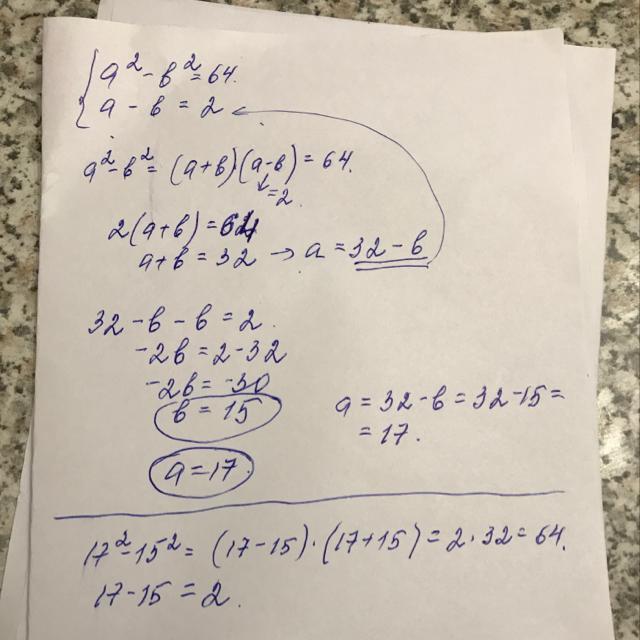 a² - b² = 64.
a - b = 2
a² - b² = (a+b)·(a-b) = 64.
= 2.
2(a+b) = 64
a+b = 32 → a = 32 - b
32 - b - b = 2.
-2b = 2 - 32
-2b = -30
b = 15
a = 32 - b = 32 - 15 =
= 17.
a = 17.
17² - 15² = (17-15)·(17+15) = 2·32 = 64.
17 - 15 = 2.